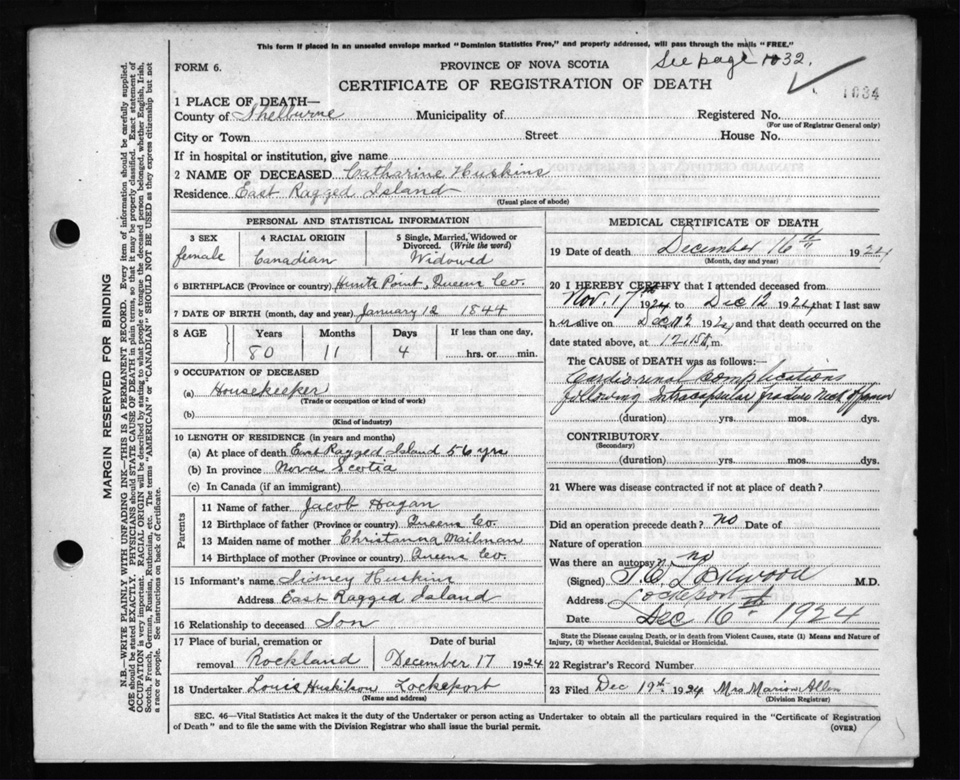 This form if placed in an unsealed envelope marked "Dominion Statistics Free," and properly addressed, will pass through the mails "FREE."
FORM 6.
PROVINCE OF NOVA SCOTIA
See page 1032.
CERTIFICATE OF REGISTRATION OF DEATH
1034
1 PLACE OF DEATH—
County of Shelburne Municipality of Registered No.
(For use of Registrar General only)
City or Town Street House No.
If in hospital or institution, give name
2 NAME OF DECEASED Catharine Huskins
Residence East Ragged Island
(Usual place of abode)
PERSONAL AND STATISTICAL INFORMATION
3 SEX 4 RACIAL ORIGIN 5 Single, Married, Widowed or Divorced. (Write the word)
female Canadian Widowed
6 BIRTHPLACE (Province or country) Hunts Point, Queens Co.
7 DATE OF BIRTH (month, day and year) January 12 1844
8 AGE Years Months Days If less than one day,
80 11 4 hrs. or min.
9 OCCUPATION OF DECEASED
(a) Housekeeper
(Trade or occupation or kind of work)
(b)
(Kind of industry)
10 LENGTH OF RESIDENCE (in years and months)
(a) At place of death East Ragged Island 56 yrs
(b) In province Nova Scotia
(c) In Canada (if an immigrant)
Parents
11 Name of father Jacob Hagan
12 Birthplace of father (Province or country) Queens Co.
13 Maiden name of mother Christanna Mailman
14 Birthplace of mother (Province or country) Queens Co.
15 Informant's name Sidney Huskins
Address East Ragged Island
16 Relationship to deceased Son
17 Place of burial, cremation or removal Rockland Date of burial December 17 1924
18 Undertaker Louis Huskilson Lockeport
(Name and address)
MEDICAL CERTIFICATE OF DEATH
19 Date of death December 16th 1924
(Month, day and year)
20 I HEREBY CERTIFY that I attended deceased from
Nov. 17th 1924 to Dec 12 1924, that I last saw
her alive on Dec 12 1924, and that death occurred on the
date stated above, at m.
The CAUSE of DEATH was as follows:—
Cardiorenal Complications
following Intracapsular fracture Neck of femur
(duration) yrs. mos. dys.
CONTRIBUTORY
(Secondary)
(duration) yrs. mos. dys.
21 Where was disease contracted if not at place of death?
Did an operation precede death? no Date of
Nature of operation
Was there an autopsy? no
(Signed) Lockwood M.D.
Address Lockeport
Date Dec 16th 1924
State the Disease causing Death, or in death from Violent Causes, state (1) Means and Nature of Injury, (2) whether Accidental, Suicidal or Homicidal.
22 Registrar's Record Number
23 Filed Dec 19th 1924 Mrs Marion Allen
(Division Registrar)
SEC. 46—Vital Statistics Act makes it the duty of the Undertaker or person acting as Undertaker to obtain all the particulars required in the "Certificate of Registration
of Death" and to file the same with the Division Registrar who shall issue the burial permit. (OVER)
MARGIN RESERVED FOR BINDING
N.B.—WRITE PLAINLY WITH UNFADING INK—THIS IS A PERMANENT RECORD. Every item of information should be carefully supplied.
AGE should be stated EXACTLY. PHYSICIANS should STATE CAUSE OF DEATH in plain terms, so that it may be properly classified. Exact statement of
OCCUPATION is very important. RACIAL ORIGIN will be described by stating to what people or tongue the deceased person belonged, whether English, Irish,
Scotch, French, German, Russian, Ruthenian, etc. The terms "AMERICAN" or "CANADIAN" SHOULD NOT BE USED as they express citizenship but not
a race or people. See instructions on back of Certificate.